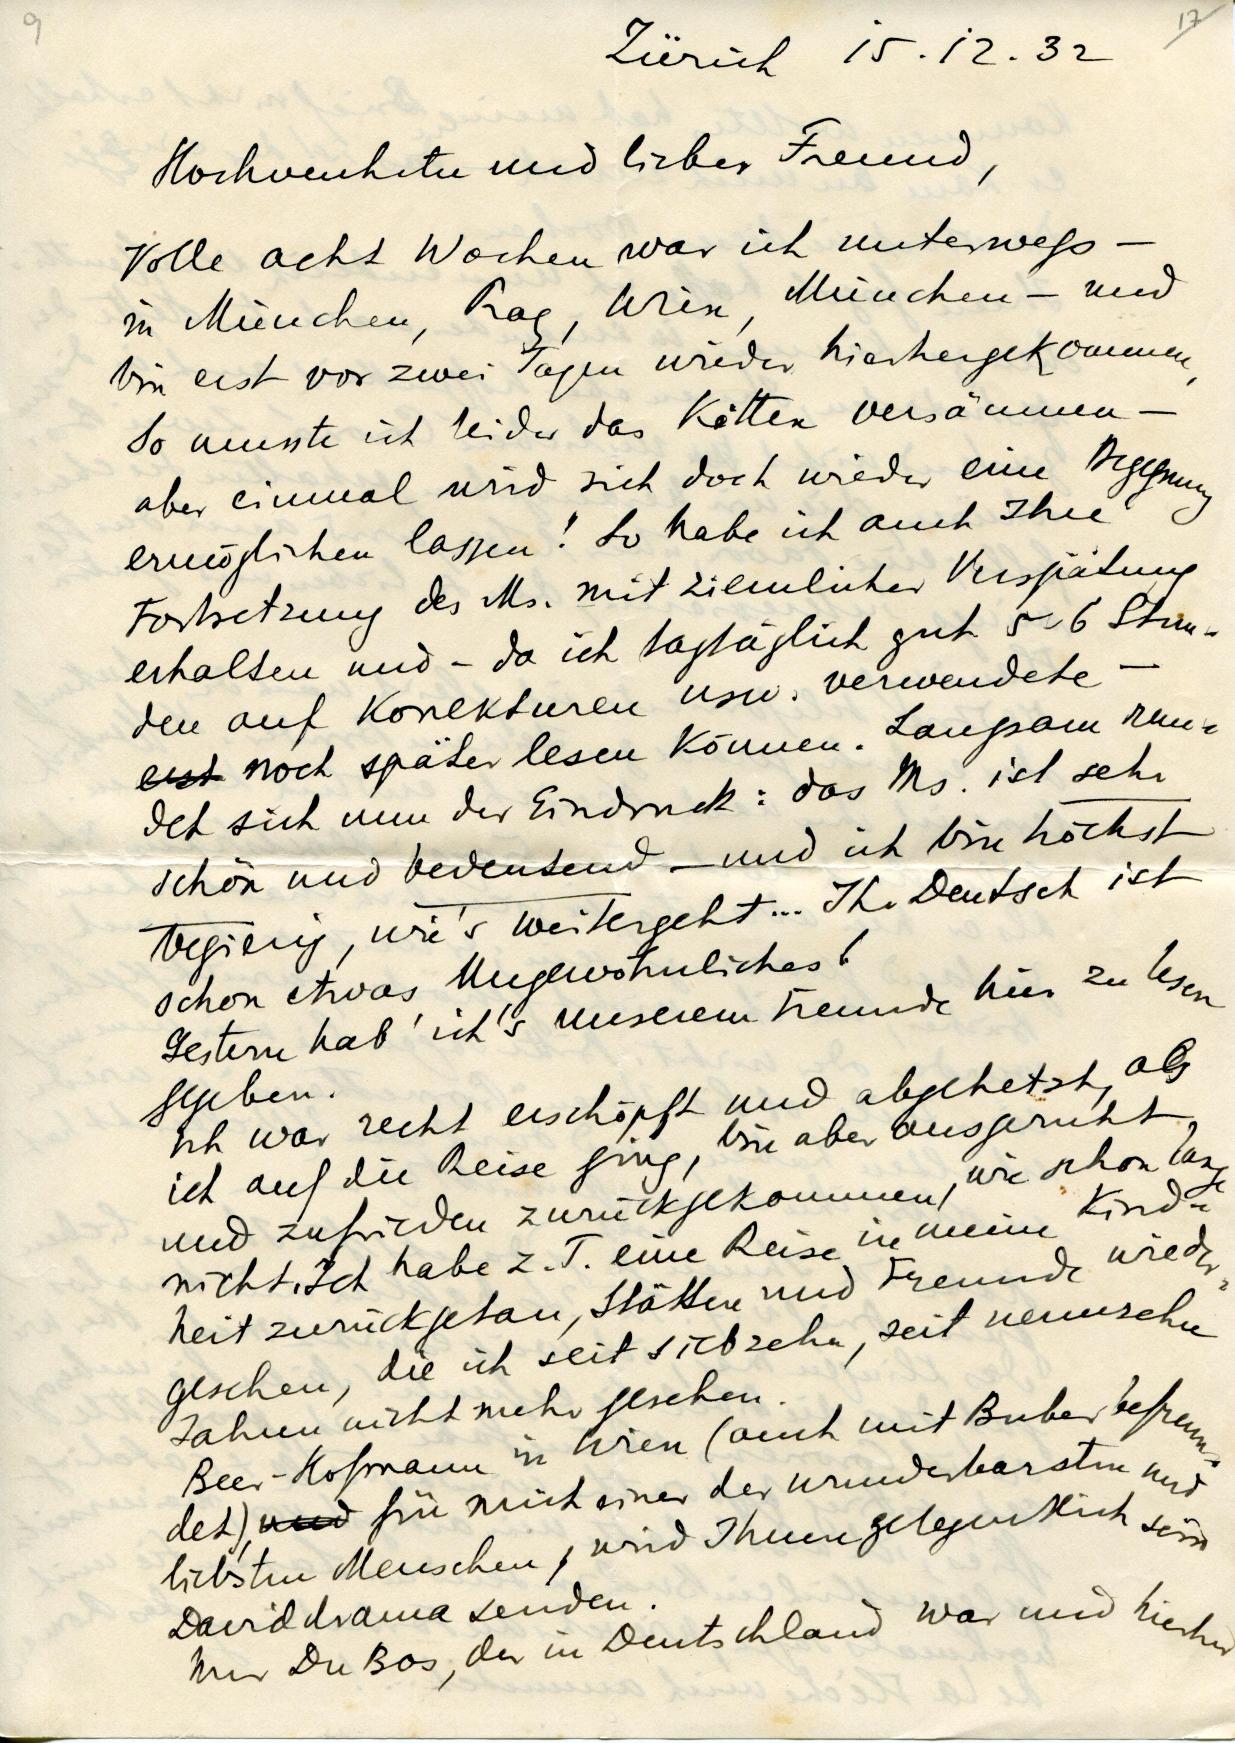 9
17
Zürich 15.12.32
Hochverehrter und lieber Freund,
Volle acht Wochen war ich unterwegs –
in München, Prag, Wien, München – und
bin erst vor zwei Tagen wieder hierhergekommen,
So musste ich leider das versäumen –
aber einmal wird sich doch wieder eine Begegnung
ermöglichen lassen! So habe ich auch Ihre
Fortsetzung des Ms. mit ziemlicher Verspätung
erhalten und – da ich tagtäglich gut 5-6 Stun-
den auf Korrekturen usw. verwendete –
erst noch später lesen können. Langsam run-
det sich nun der Eindruck: das Ms. ist sehr
schön und bedeutend – und ich bin höchst
begierig, wie's weitergeht... Ihr Deutsch ist
schon etwas Ungewöhnliches!
Gestern hab' ich's unserem Freunde hier zu lesen
gegeben.
Ich war recht erschöpft und abgehetzt, als
ich auf die Reise ging, bin aber ausgeruht
und zufrieden zurückgekommen, wie schon lange
nicht. Ich habe z.T. eine Reise in meine Kind-
heit zurückgetan, Stätten und Freunde wieder-
gesehen, die ich seit siebzehn, seit neunzehn
Jahren nicht mehr gesehen.
Beer-Hofmann in Wien (auch mit Buber befreun-
det), und für mich einer der wunderbarsten und
liebsten Menschen, wird Ihnen gelegentlich sein
Daviddrama senden.
Du Bos, der in Deutschland war und hierher